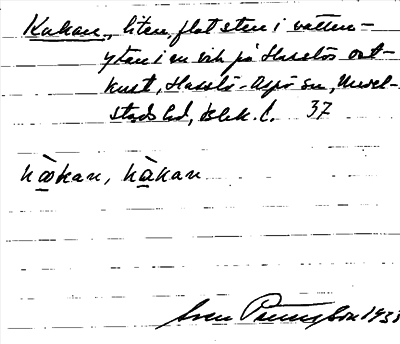 Kakan, liten, flat sten i vatten-
ytan i en vik på Hasslös ost-
kust, Hasslö-Aspö sn, Medel-
stads hd, Blek. l. 37
kakan, kàkan
Sven Benson 193